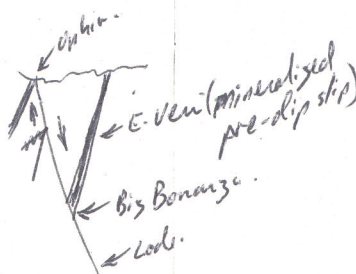 Ophir.
E. Vein (mineralized
pre-dip slip)
Big Bonanza.
Lode.